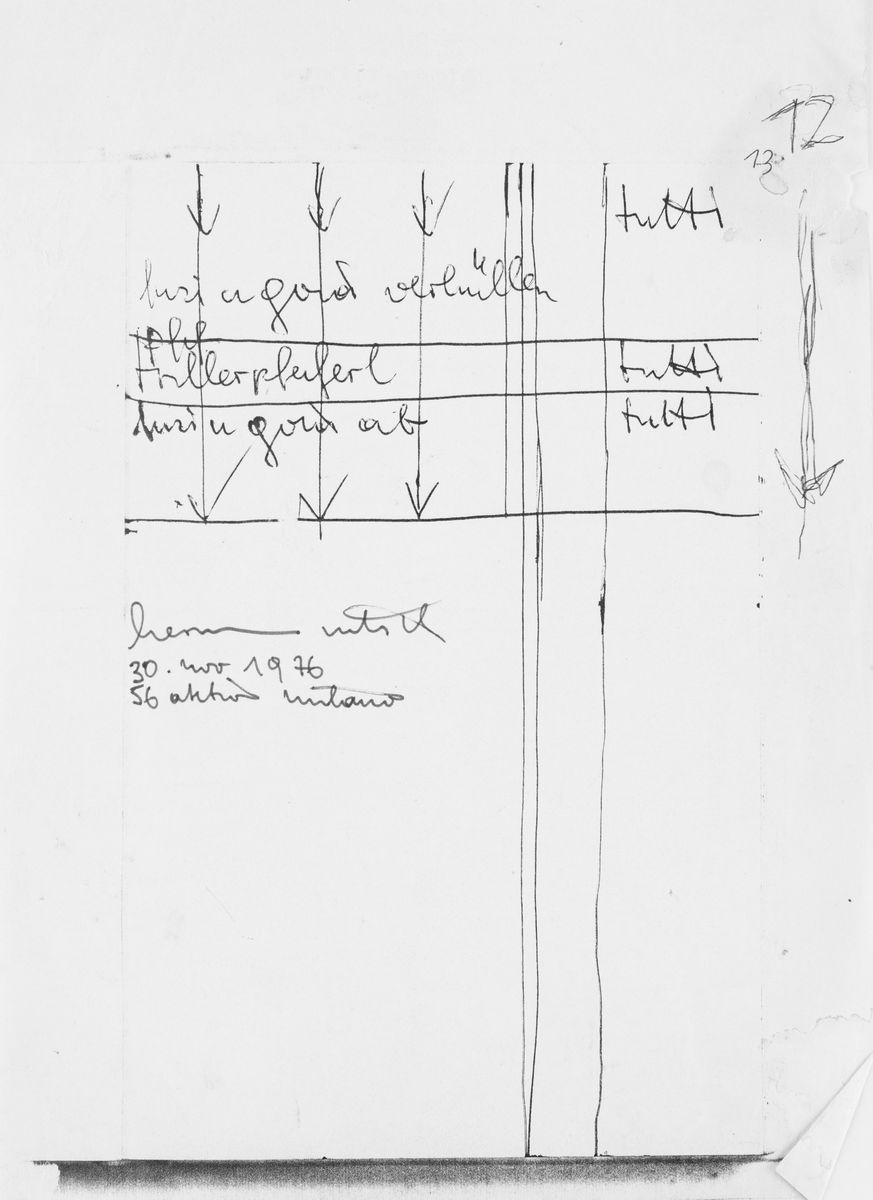 12
13
tutti
verhüllen
trillerpfeiferl tutti
ab tutti
hermann nitsch
30. nov 1976
56 aktion milano